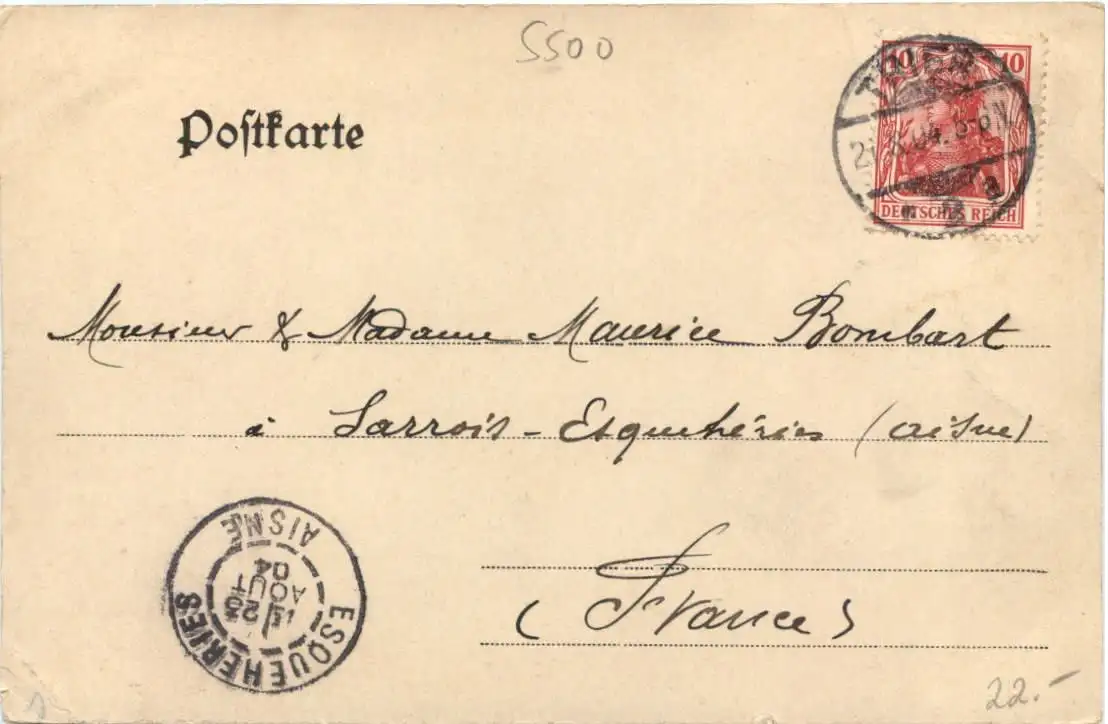 5500
10 10
TRIER
8.04. 5-6N
DEUTSCHES REICH
Postkarte
Monsieur & Madame Maurice Bombart
à Sarrois - Esquehéries (aisne)
(France)
ESQUEHERIES
AISNE
23
AOUT
04
22.-